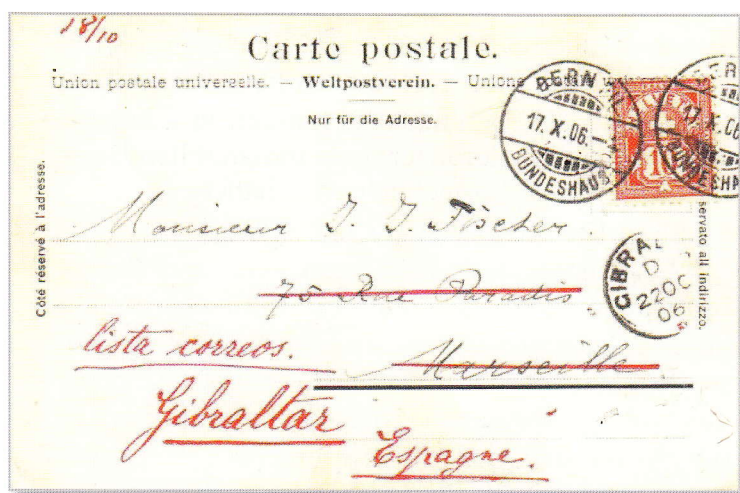 18/10
Carte postale.
Union postale universelle. — Weltpostverein. — Unione postale universale
Nur für die Adresse.
BERN
17.X.06.
BUNDESHAUS
BERN
17.X.06
BUNDESHA
HELVETIA
10
Côté réservé à l'adresse.
servato all indirizzo.
Monsieur J. J. Fischer.
75 Rue Paradis
Marseille.
GIBRAL
D
22OC
06
lista correos.
Gibraltar
Espagne.